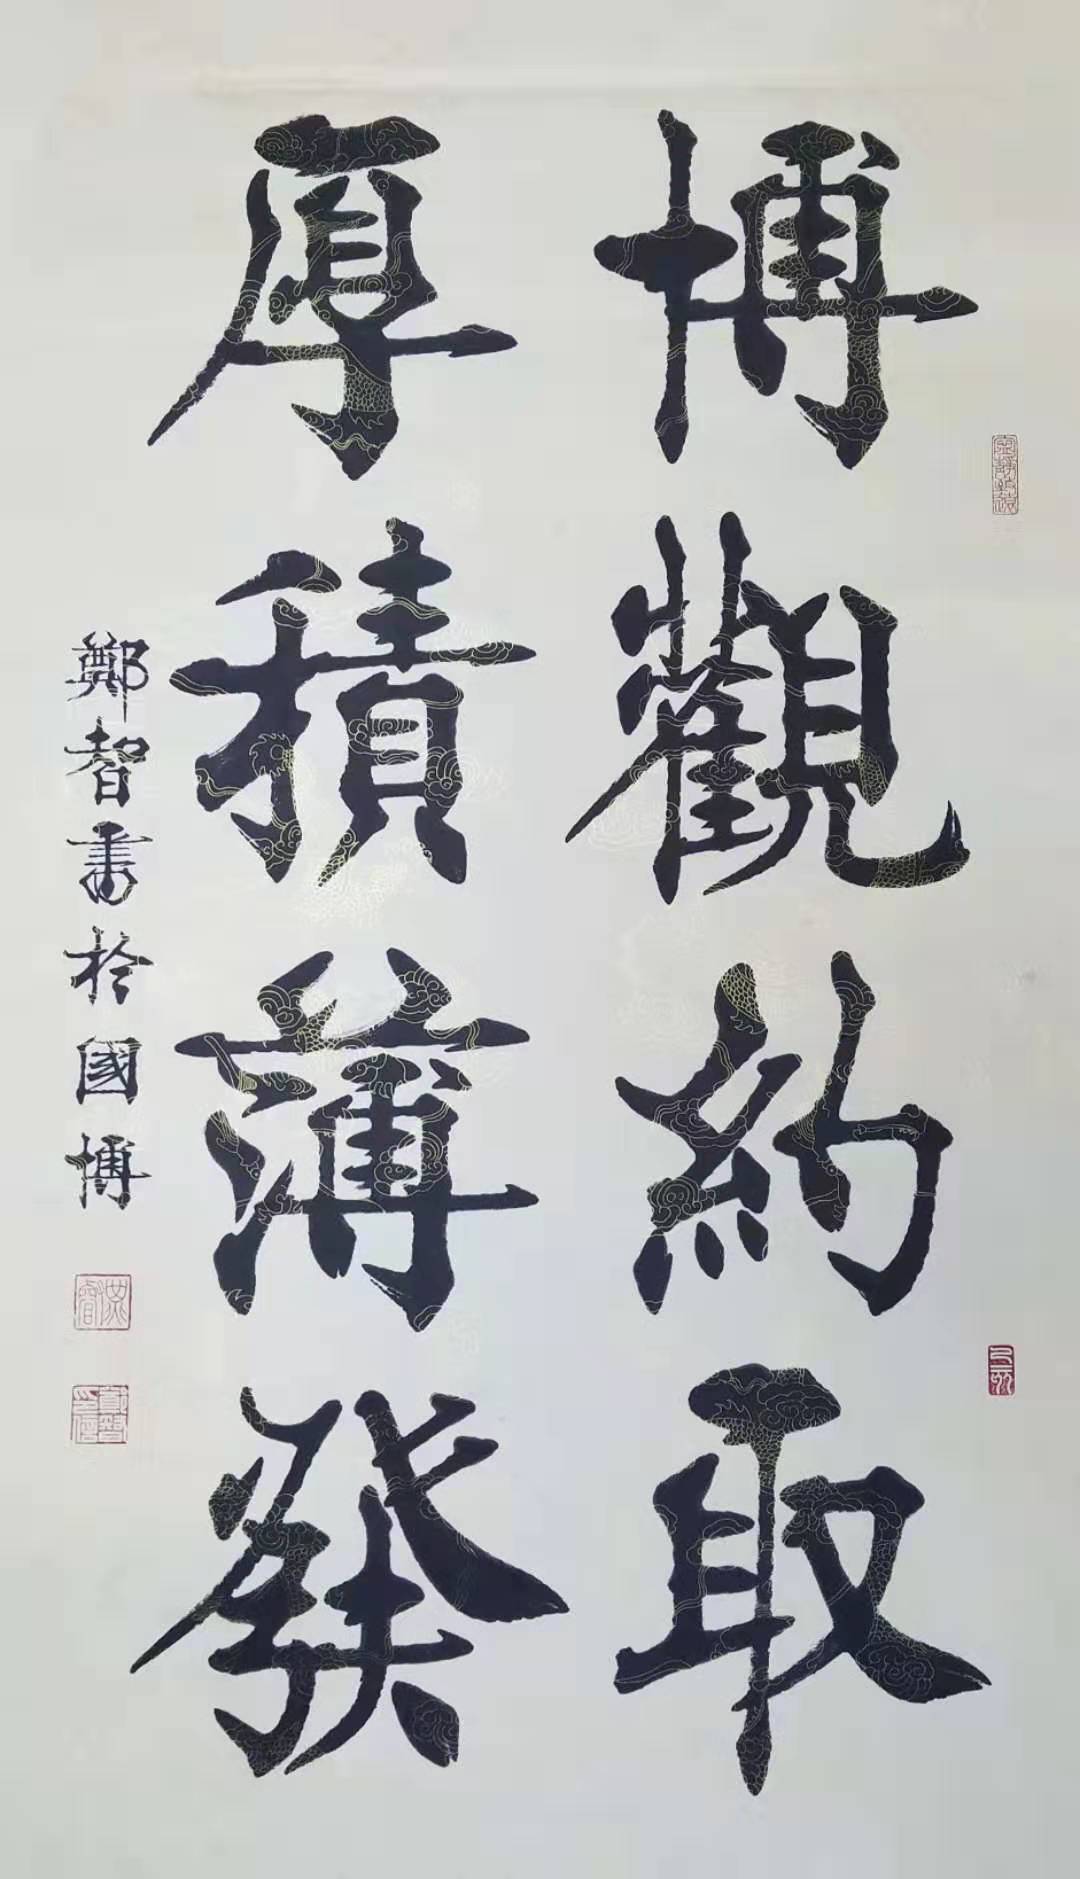 博觀約取
厚積薄發
鄭智書於國博